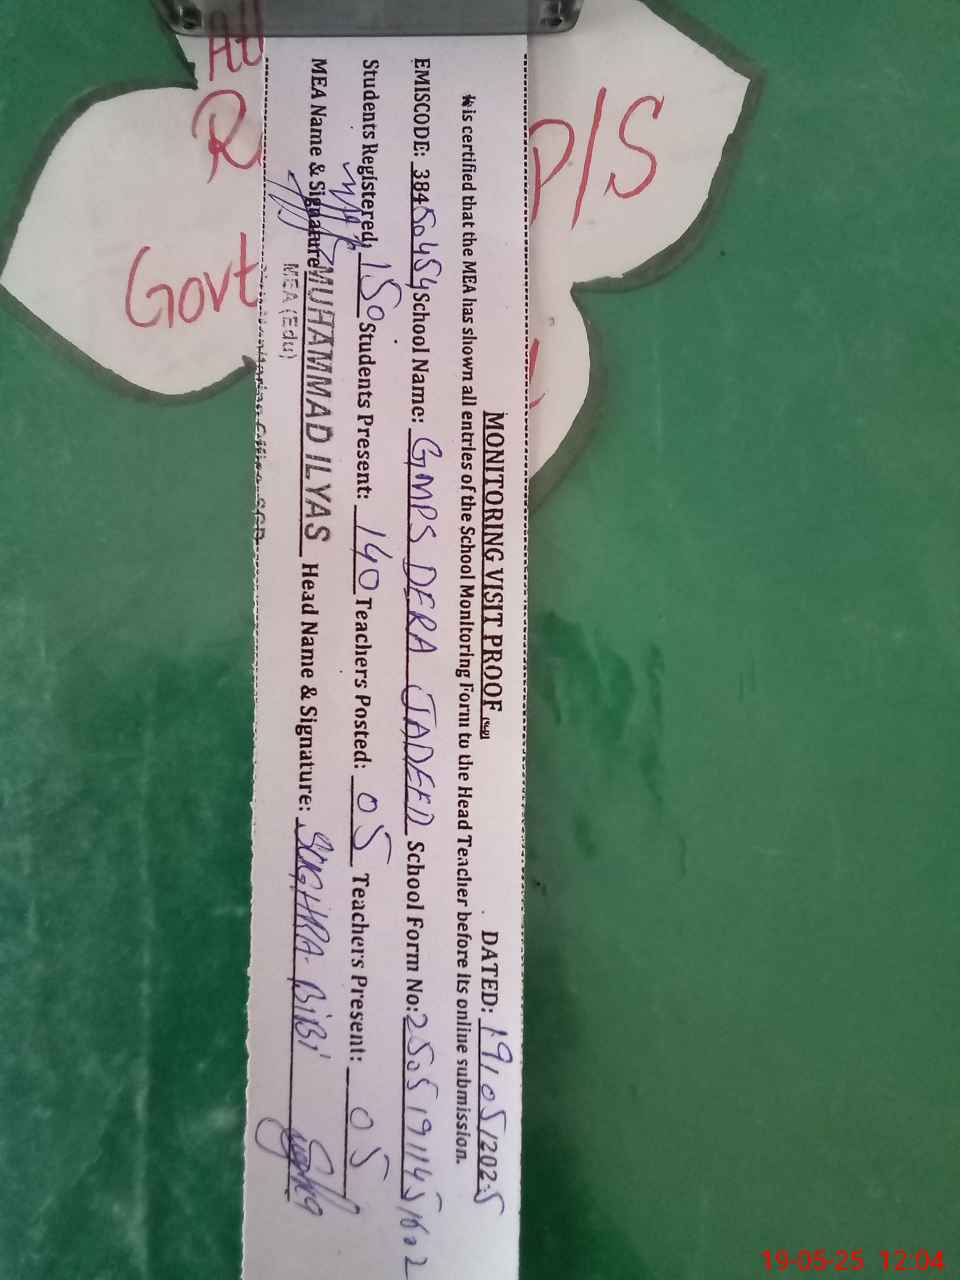 MONITORING VISIT PROOF DATED: 19/05/2025
is certified that the MEA has shown all entries of the School Monitoring Form to the Head Teacher before its online submission.
EMISCODE: 38450454 School Name: GMPS DERA JADEED School Form No: 2505191145
Students Registered: 150 Students Present: 140 Teachers Posted: 05 Teachers Present: 05
MEA Name & Signature MUHAMMAD ILYAS Head Name & Signature: SUGHRA BiBi
MEA (Edu)
P/S
Govt
19-05-25 12:04